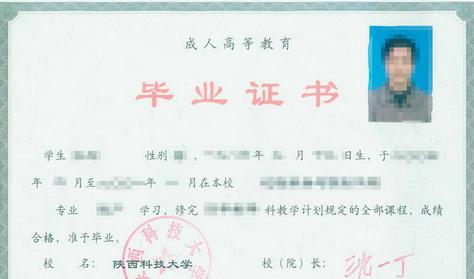 成人高等教育
毕业证书
学生 性别 , 年 月 日生，于
年 月至 年 月在本校
专业 学习，修完 科教学计划规定的全部课程，成绩
合格，准予毕业。
校 名： 陕西科技大学 校（院）长： 沈一丁
西科技大